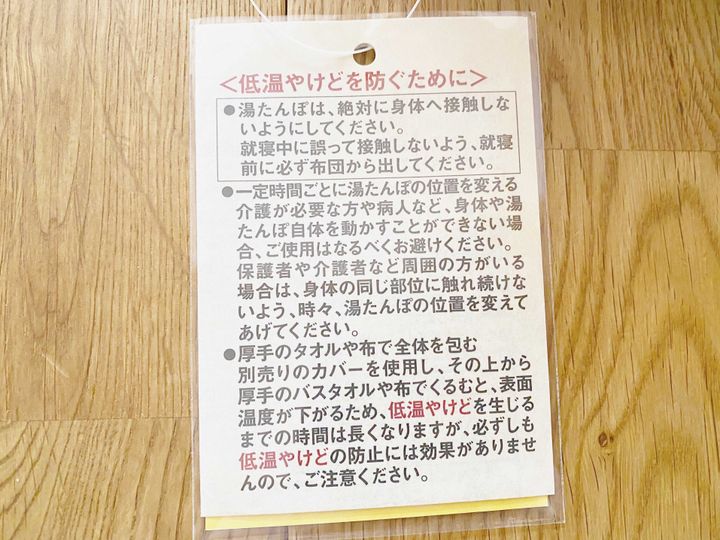 ＜低温やけどを防ぐために＞
●湯たんぽは、絶対に身体へ接触しな
いようにしてください。
就寝中に誤って接触しないよう、就寝
前に必ず布団から出してください。
●一定時間ごとに湯たんぽの位置を変える
介護が必要な方や病人など、身体や湯
たんぽ自体を動かすことができない場
合、ご使用はなるべくお避けください。
保護者や介護者など周囲の方がいる
場合は、身体の同じ部位に触れ続けな
いよう、時々、湯たんぽの位置を変えて
あげてください。
●厚手のタオルや布で全体を包む
別売りのカバーを使用し、その上から
厚手のバスタオルや布でくるむと、表面
温度が下がるため、低温やけどを生じる
までの時間は長くなりますが、必ずしも
低温やけどの防止には効果がありませ
んので、ご注意ください。